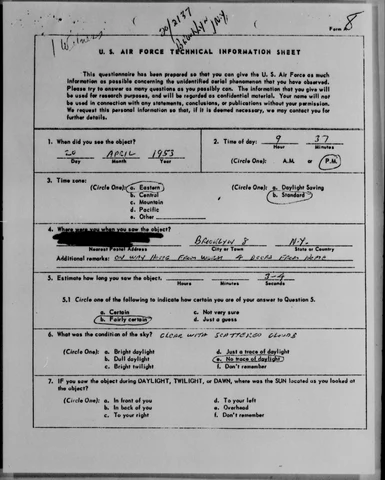 1 Witness
20/2137
Brooklyn, N.Y.
Form 8
U. S. AIR FORCE TECHNICAL INFORMATION SHEET
This questionnaire has been prepared so that you can give the U. S. Air Force as much
information as possible concerning the unidentified aerial phenomenon that you have observed.
Please try to answer as many questions as you possibly can. The information that you give will
be used for research purposes, and will be regarded as confidential material. Your name will not
be used in connection with any statements, conclusions, or publications without your permission.
We request this personal information so that, if it is deemed necessary, we may contact you for
further details.
1. When did you see the object?
20 APRIL 1953
Day Month Year
2. Time of day: 9 37
Hour Minutes
(Circle One): A.M. or P.M.
3. Time zone:
(Circle One): a. Eastern
b. Central
c. Mountain
d. Pacific
e. Other
(Circle One): a. Daylight Saving
b. Standard
4. Where were you when you saw the object?
BROOKLYN 8 N.Y.
Nearest Postal Address City or Town State or Country
Additional remarks: ON WAY HOME FROM WORK 4 DOORS FROM HOME
5. Estimate how long you saw the object. 3-4
Hours Minutes Seconds
5.1 Circle one of the following to indicate how certain you are of your answer to Question 5.
a. Certain
b. Fairly certain
c. Not very sure
d. Just a guess
6. What was the condition of the sky? CLEAR WITH SCATTERED CLOUDS
(Circle One): a. Bright daylight
b. Dull daylight
c. Bright twilight
d. Just a trace of daylight
e. No trace of daylight
f. Don't remember
7. IF you saw the object during DAYLIGHT, TWILIGHT, or DAWN, where was the SUN located as you looked at
the object?
(Circle One): a. In front of you
b. In back of you
c. To your right
d. To your left
e. Overhead
f. Don't remember